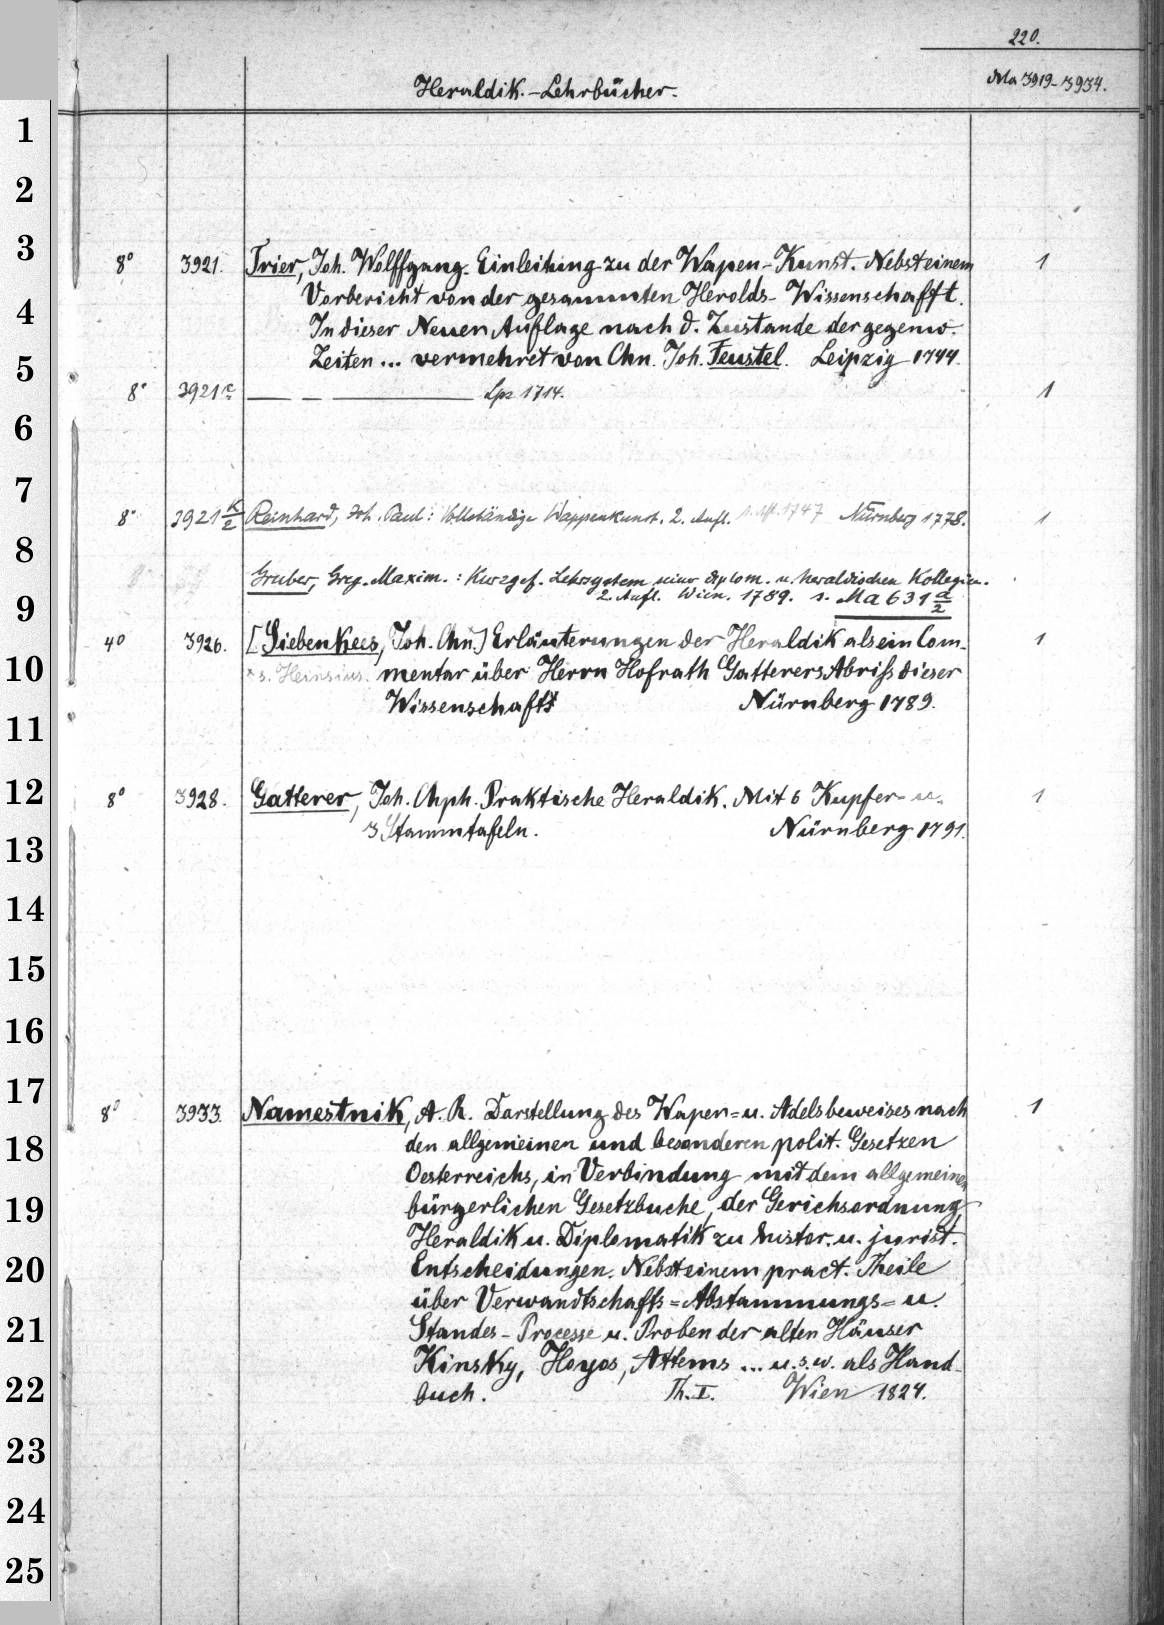 220.
Heraldik.-Lehrbücher.
Ma 3919-3934.
8° 3921. Trier, Joh. Wolffgang. Einleitung zu der Wapen-Kunst. Nebst einem 1
Vorbericht von der gesammten Herolds-Wissenschafft.
In dieser Neuen Auflage nach d. Zustande der gegenw.
Zeiten... vermehret von Chn. Joh. Feustel. Leipzig 1744.
8° 3921 c — — — Lpz 1714. 1
8° 3921 k/2 Reinhard, Joh. Paul: Vollständige Wappenkunst. 2. Aufl. 1747 Nürnberg 1778. 1
Gruber, Greg. Maxim.: Kurzgef. Lehrsystem seiner diplom. u. heraldischen Kollegien.
2. Aufl. Wien. 1789. s. Ma 631 d/2
4° 3926. [Siebenkees, Joh. Chn.] Erläuterungen der Heraldik als ein Com- 1
* s. Heinsius. mentar über Herrn Hofrath Gatterers Abriß dieser
Wissenschaft* Nürnberg 1789.
8° 3928. Gatterer, Joh. Chph. Praktische Heraldik. Mit 6 Kupfer- u. 1
3 Stammtafeln. Nürnberg 1791.
8° 3933. Namestnik, A. R. Darstellung des Wapen= u. Adelsbeweises nach 1
den allgemeinen und besonderen polit. Gesetzen
Oesterreichs, in Verbindung mit dem allgemeinen
bürgerlichen Gesetzbuche, der Gerichsordnung,
Heraldik u. Diplomatik zu histor. u. jurist.
Entscheidungen. Nebst einem pract. Theile
über Verwandtschafts=Abstammungs= u.
Standes-Processe u. Proben der alten Häuser
Kinsky, Hoyos, Attems ... u.s.w. als Hand-
buch. Th. I. Wien 1824.
1
2
3
4
5
6
7
8
9
10
11
12
13
14
15
16
17
18
19
20
21
22
23
24
25